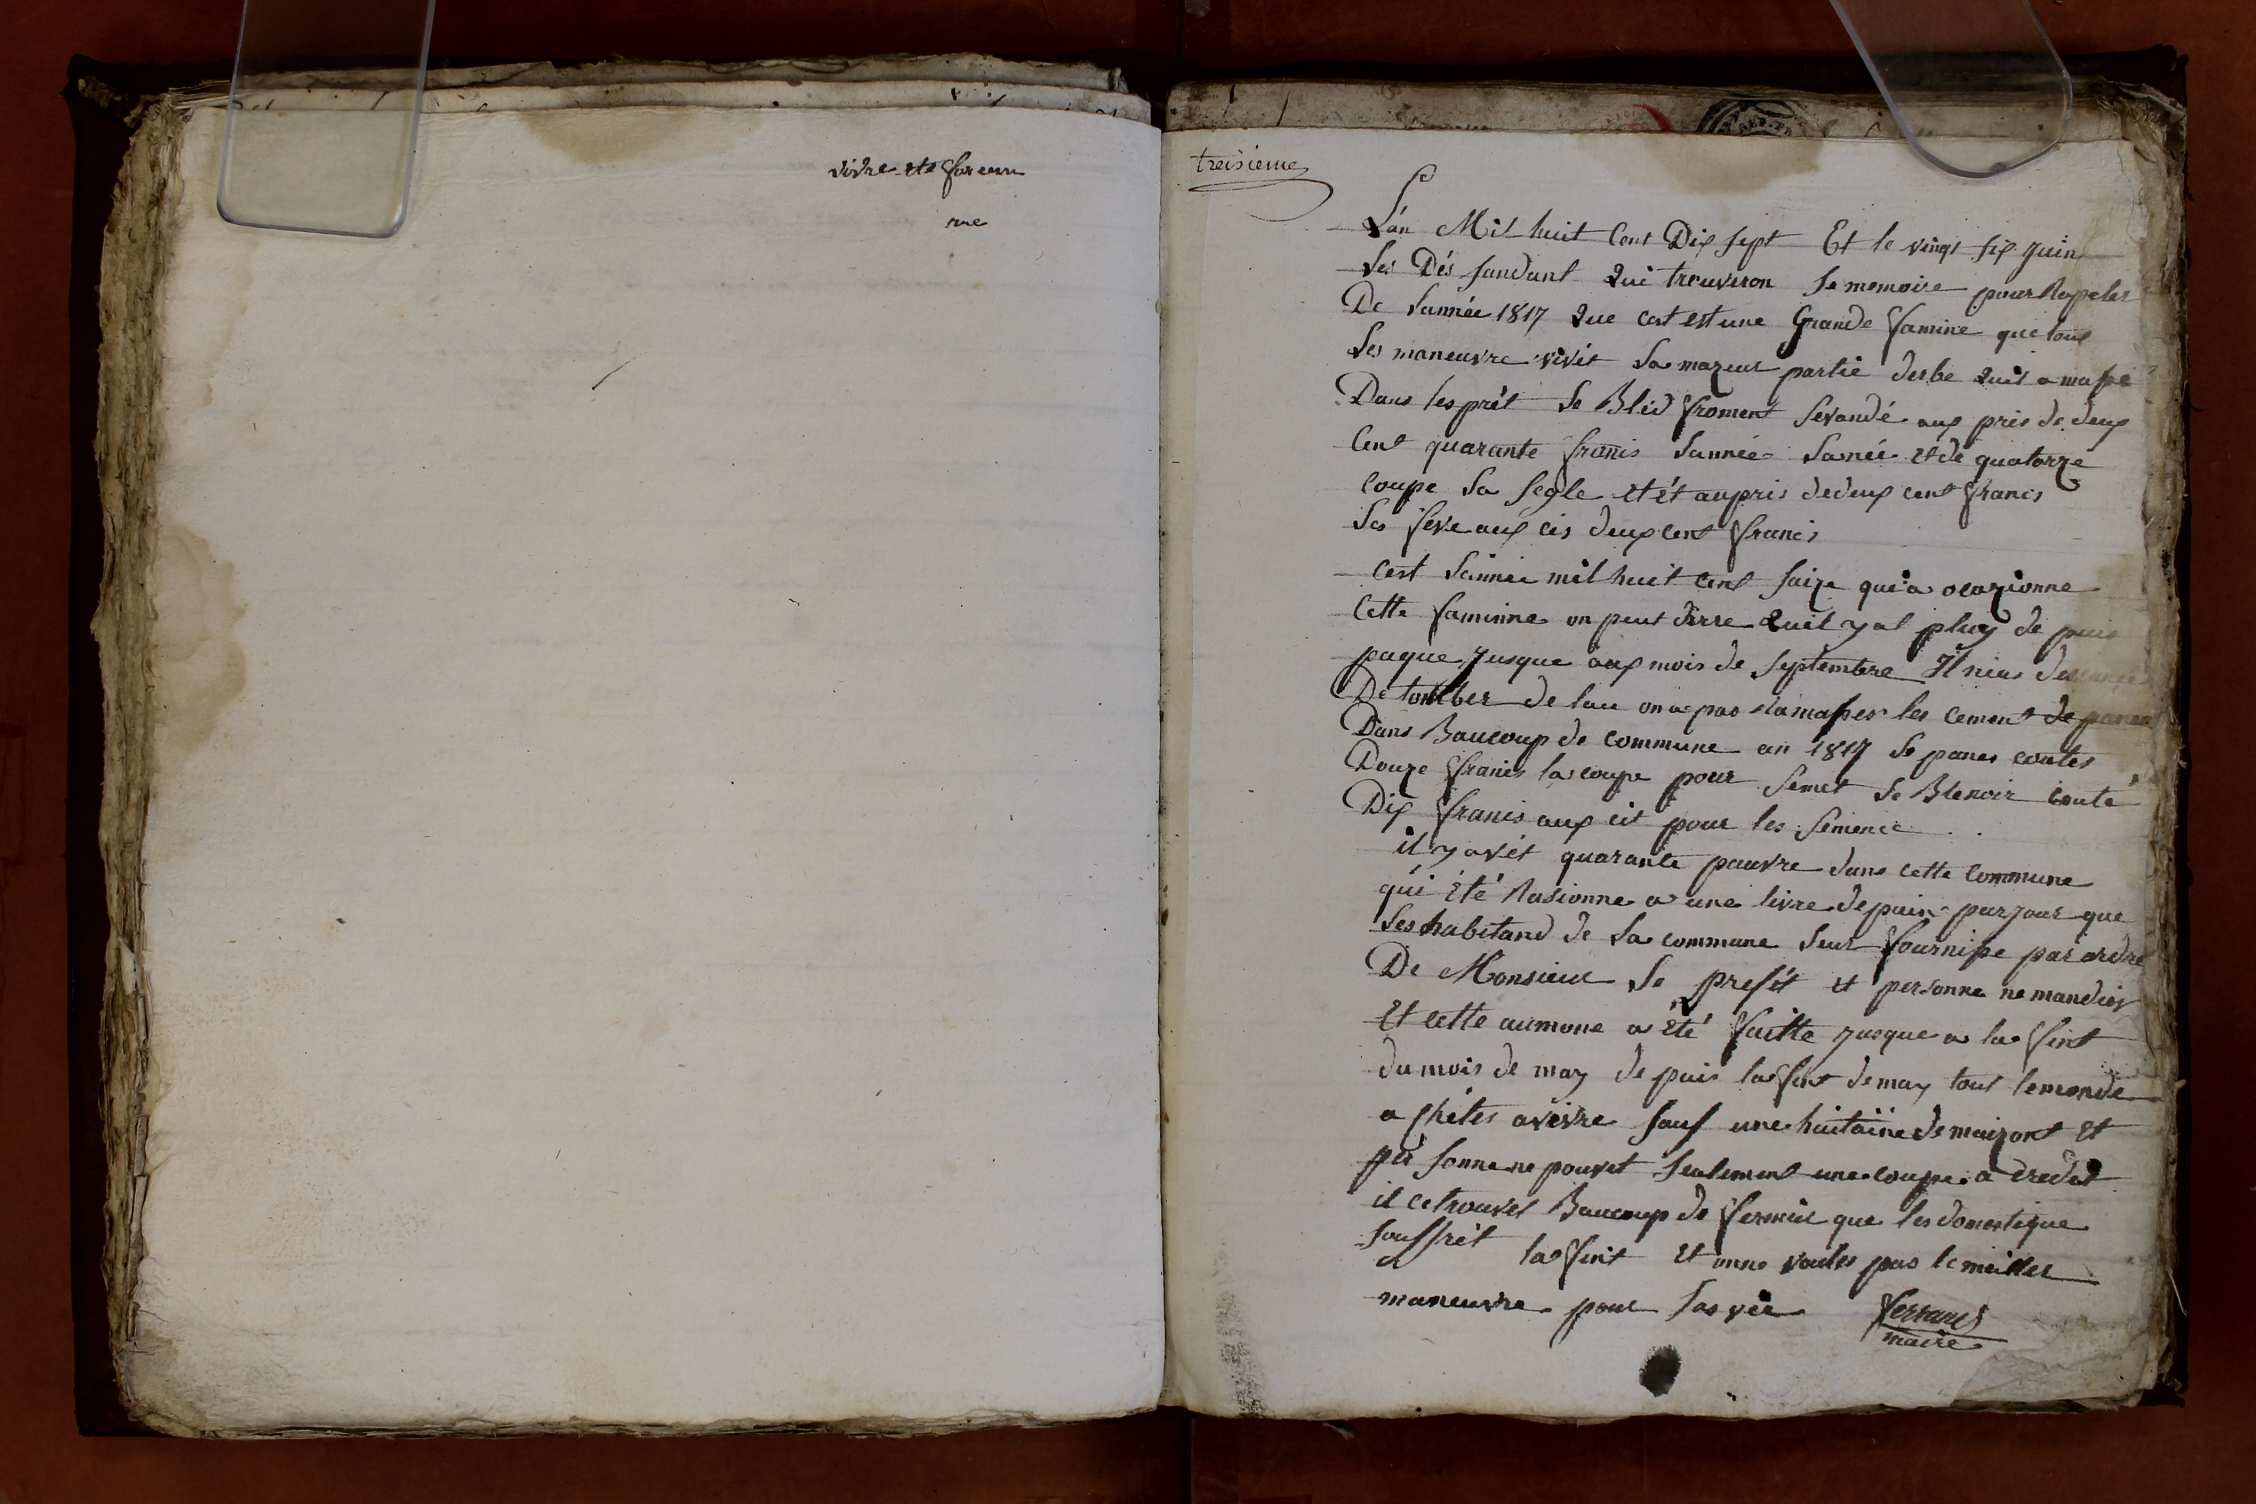 vivre ete
me
treisieme
L'an Mil huit Cent Dix sept Et le vingt six juin
Les Dés sandant Qui treuveron Le memoire pour Rapeler
De Lannée 1817 Que cest est une Grande famine que tous
Les maneuvre vivét La mazeur partie derbe Quil a masse
Dans les prét Le Bled froment sevandé aux pris de deux
Cent quarante francs Lannée Lanée et de quatorze
Coupe La segle et ét aupris dedeux cent francs
Les féve aux cis deux cent francs
Cest Lannée mil huit Cent saize qui a ocazionne
Cette faminne on peut dirre Quil y at pluy de puis
paque jusque aux mois de septembre Il nia
De tomber de lau on a pas ramasser les Cement de
Dans Baucoup de commune an 1817 Le panes coutés
Douze francs la coupe pour semét Le Blenoir Couté
Dix francs aux cit pour les semence
il y avét quarante pauvre dans cette Commune
qui été Rasionne a une livre depain par jour que
Les habitand de La commune Leur fournisse par ordre
De Monsieur Le prefét et personne ne mandiét
Et cette aumone a été faitte jusque a la fint
du mois de may de puis la fint de may tous lemonde
a chétes a vivre sauf une huitaine de maizont et
per sonne ne pouvét seulement une coupe a credit
il cetrouvét Baucoup de fermié que les domestique
souffrét la fint et onne voulés pas le meiller
maneuvre pour sas vie ferrand
maire